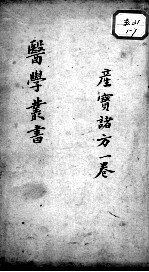 產寶諸方一卷
醫學叢書